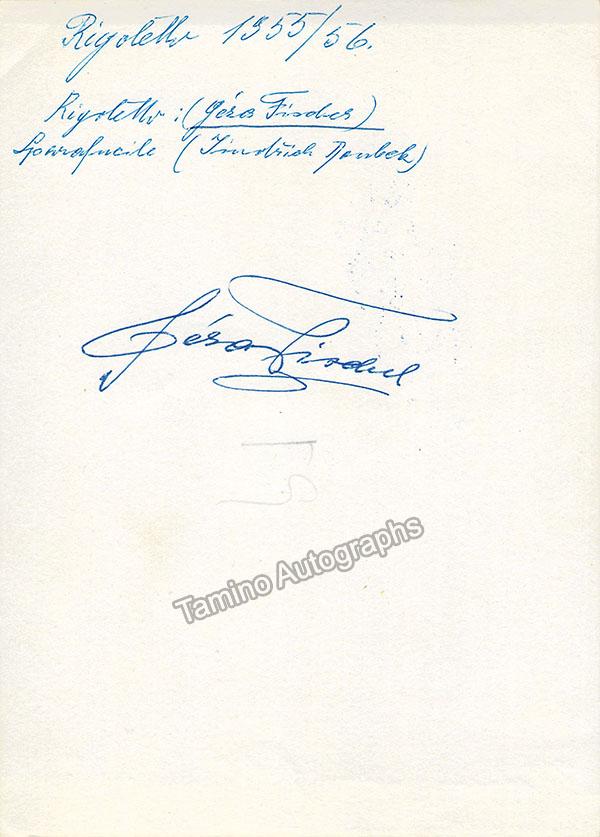 Rigoletto 1955/56.
Rigoletto: (Géza Fischer)
Sparafucile (Jindřich Doubek)
Géza Fischer
Tamino Autographs